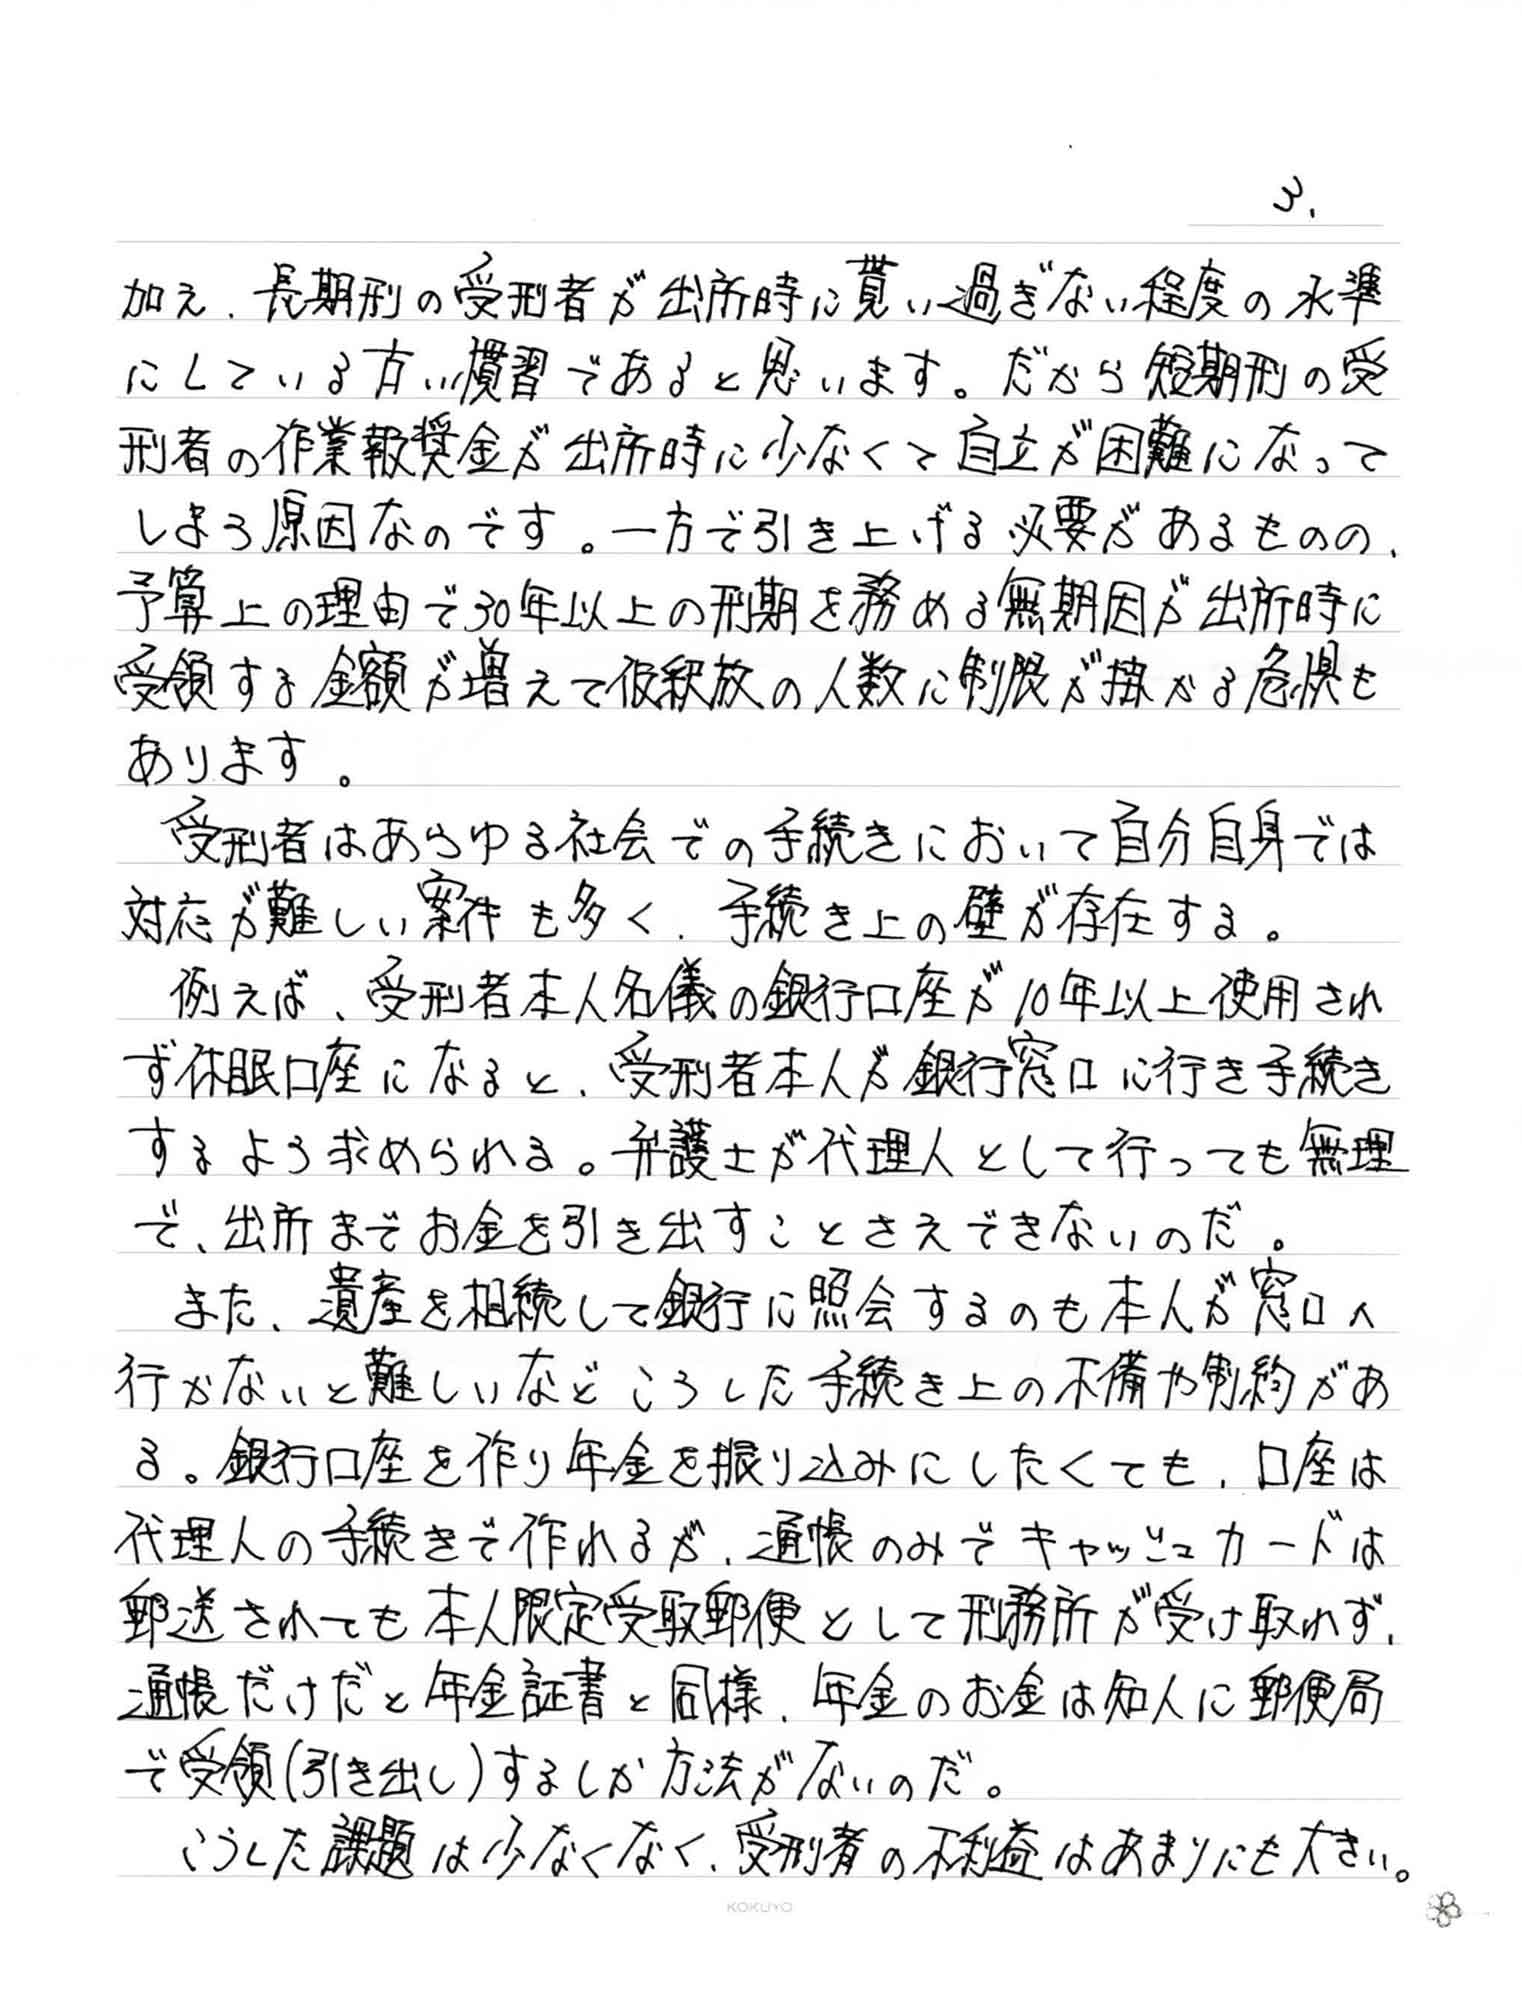 3.
加え、長期刑の受刑者が出所時に貰い過ぎない程度の水準
にしている古い慣習であると思います。だから短期刑の受
刑者の作業報奨金が出所時に少なくて自立が困難になって
しまう原因なのです。一方で引き上げる必要があるものの、
予算上の理由で30年以上の刑期を務める無期囚が出所時に
受領する金額が増えて仮釈放の人数に制限が掛かる危惧も
あります。
受刑者はあらゆる社会での手続きにおいて自分自身では
対応が難しい案件も多く、手続き上の壁が存在する。
例えば、受刑者本人名儀の銀行口座が10年以上使用され
ず休眠口座になると、受刑者本人が銀行窓口に行き手続き
するよう求められる。弁護士が代理人として行っても無理
で、出所までお金を引き出すことさえできないのだ。
また、遺産を相続して銀行に照会するのも本人が窓口へ
行かないと難しいなどこうした手続き上の不備や制約があ
る。銀行口座を作り年金を振り込みにしたくても、口座は
代理人の手続きで作れるが、通帳のみでキャッシュカードは
郵送されても本人限定受取郵便として刑務所が受け取れず、
通帳だけだと年金証書と同様、年金のお金は知人に郵便局
で受領(引き出し)するしか方法がないのだ。
こうした課題は少なくなく、受刑者の不利益はあまりにも大きい。
KOKUYO